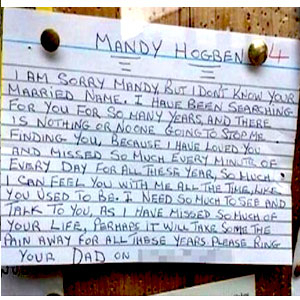 MANDY HOGBEN 4
I AM SORRY MANDY, BUT I DON'T KNOW YOUR
MARRIED NAME. I HAVE BEEN SEARCHING
FOR YOU FOR SO MANY YEARS, AND THERE
IS NOTHING OR NO ONE GOING TO STOP ME
FINDING YOU, BECAUSE I HAVE LOVED YOU
AND MISSED SO MUCH EVERY MINUTE OF
EVERY DAY FOR ALL THESE YEAR, SO MUCH.
I CAN FEEL YOU WITH ME ALL THE TIME, LIKE
YOU USED TO BE. I NEED SO MUCH TO SEE AND
TALK TO YOU, AS I HAVE MISSED SO MUCH OF
YOUR LIFE, PERHAPS IT WILL TAKE SOME THE
PAIN AWAY FOR ALL THESE YEARS. PLEASE RING
YOUR DAD ON